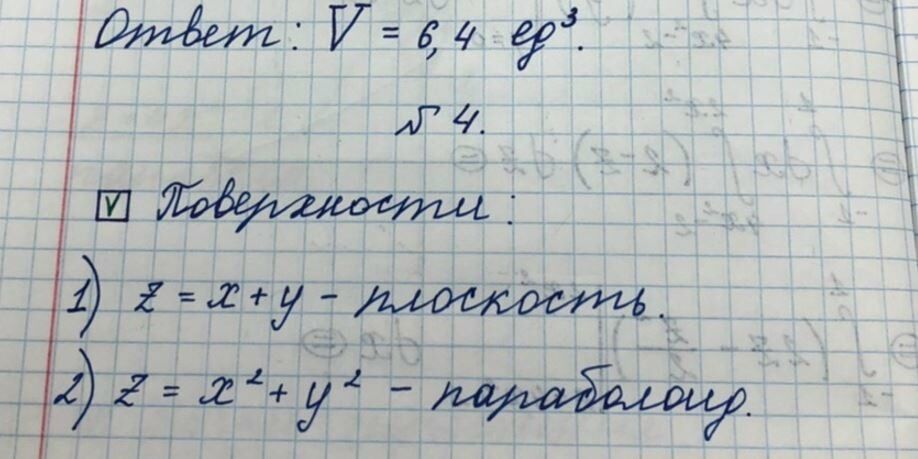 Ответ: V = 6,4 ед³.
№ 4.
V Поверхности:
1) z = x + y - плоскость.
2) z = x² + y² - параболоид.